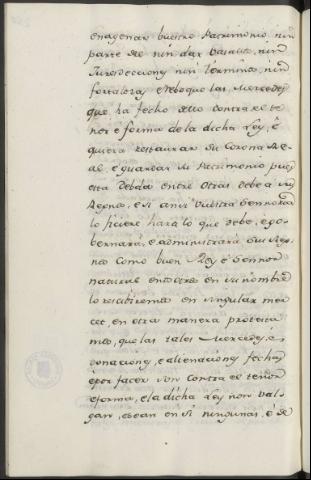 enagenar buestro Patrimonio nin
parte de el nin dar basallos, nin
Jurisdecciony nin terminos, nin
fortalezas, e reboque las Mercedes
que ha fecho dello contra el te
nor e forma de la dicha Ley, e
quiera restaurar su Corona Re
al e guardar su Patrimonio pues
esta Debda entre otras debe a sus
Regnos, e si ansi vuestra Sennoria
lo ficiere hara lo que debe, e go-
bernará, e administrará sus Reg-
nos como buen Rey e Sennor
natural en otra en su nombre
lo rescibiremos en singular mer
cet, en otra manera protesta
mos, que las tales Mercedes, e
donaciones, e alienaciones fechas
e por facer son contra el tenor
e forma, e la dicha Ley non bal-
gan, e sean en si ningunas, e de